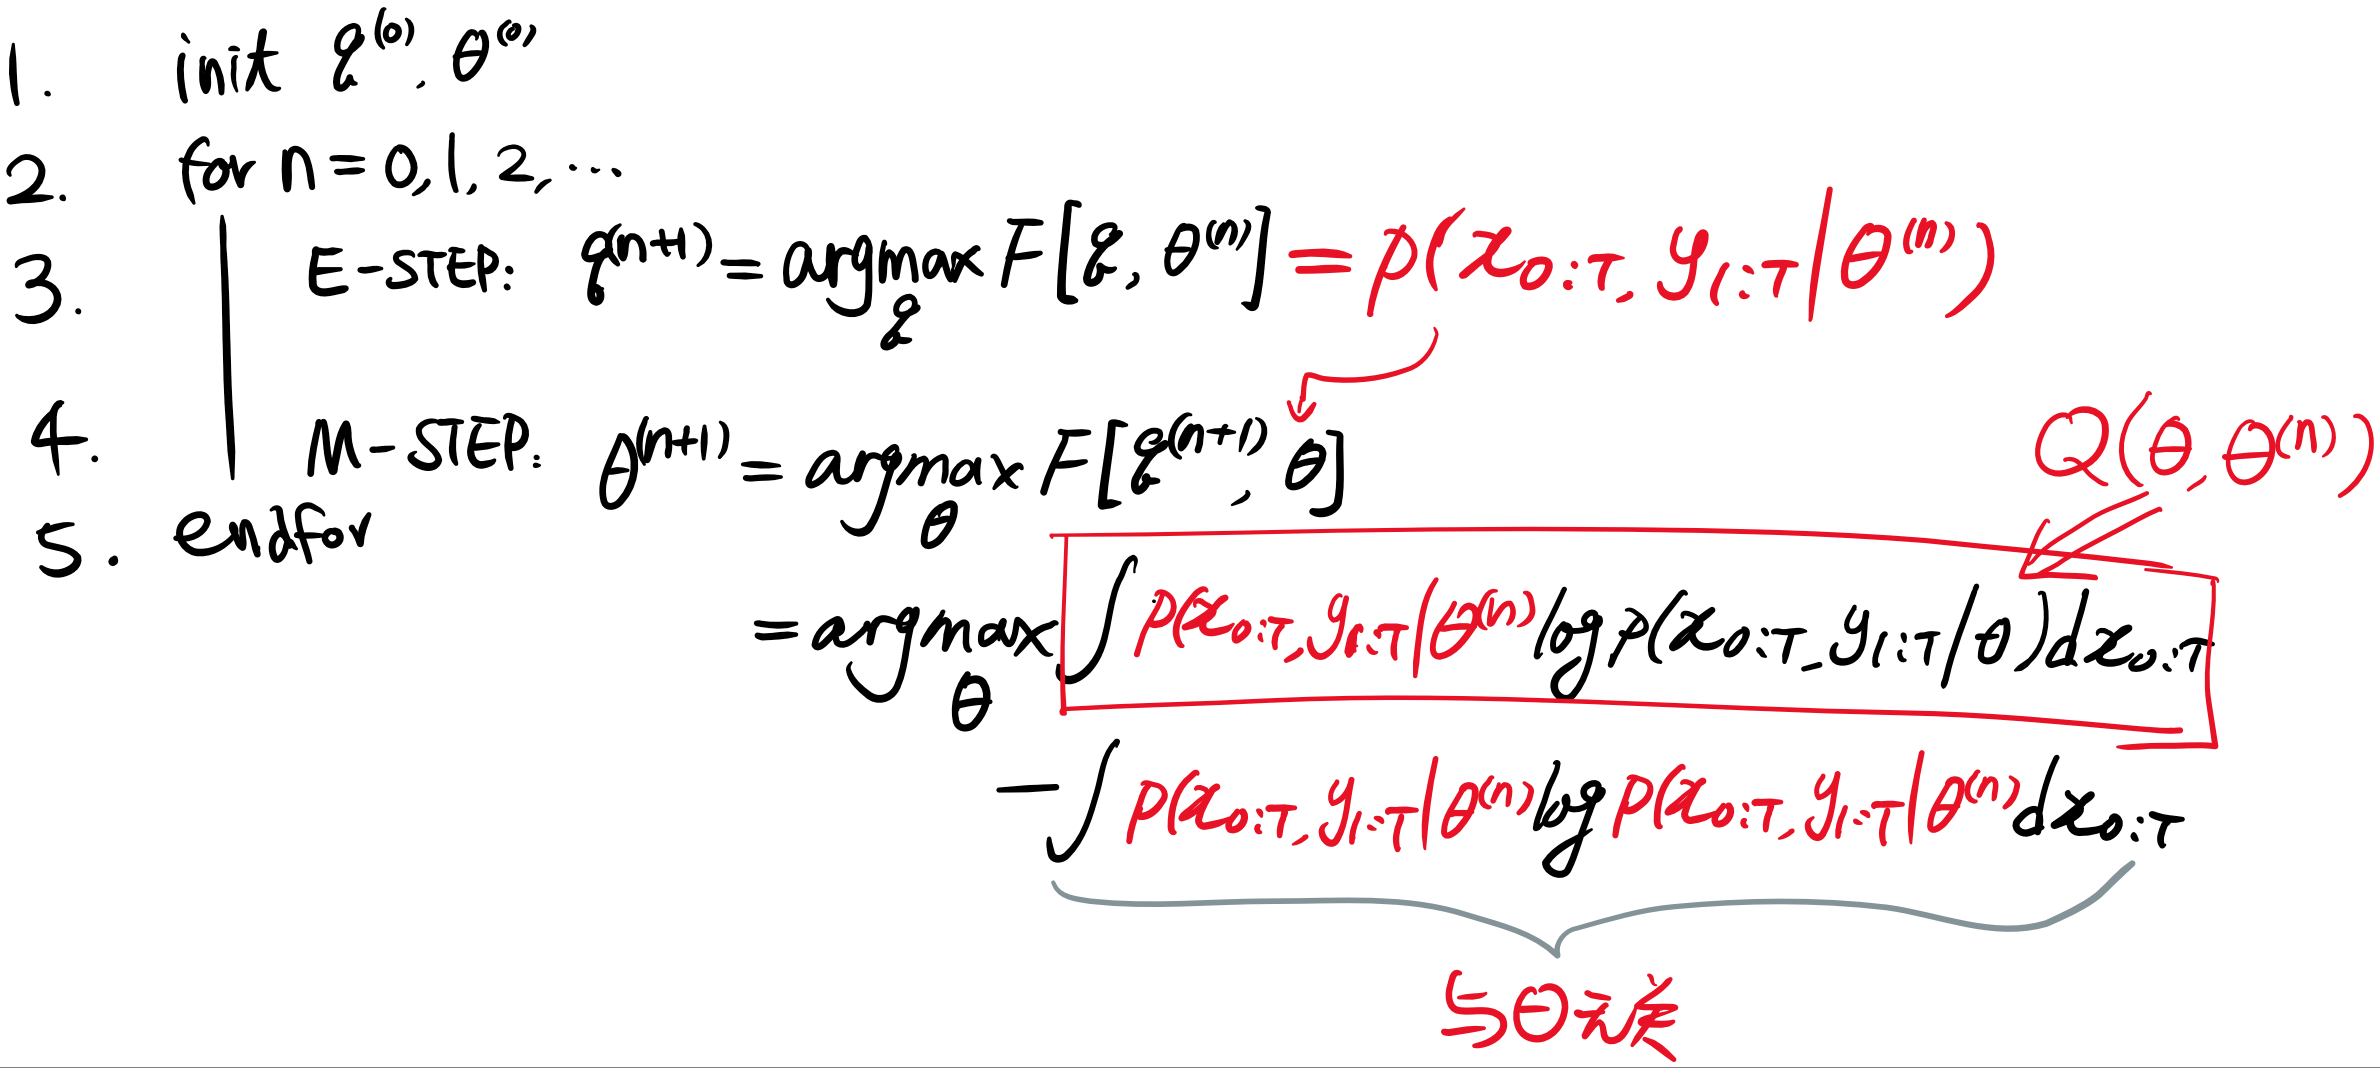 1. init q^{(0)}, θ^{(0)}
2. for n = 0, 1, 2, ...
3. E-STEP: q^{(n+1)} = argmax_q F[q, θ^{(n)}] = p(x_{0:T}, y_{1:T} | θ^{(n)})
4. M-STEP: θ^{(n+1)} = argmax_θ F[q^{(n+1)}, θ]
Q(θ, θ^{(n)})
5. endfor
= argmax_θ ∫ p(x_{0:T}, y_{1:T} | θ^{(n)}) log p(x_{0:T}, y_{1:T} | θ) dx_{0:T}
− ∫ p(x_{0:T}, y_{1:T} | θ^{(n)}) log p(x_{0:T}, y_{1:T} | θ^{(n)}) dx_{0:T}
与θ无关